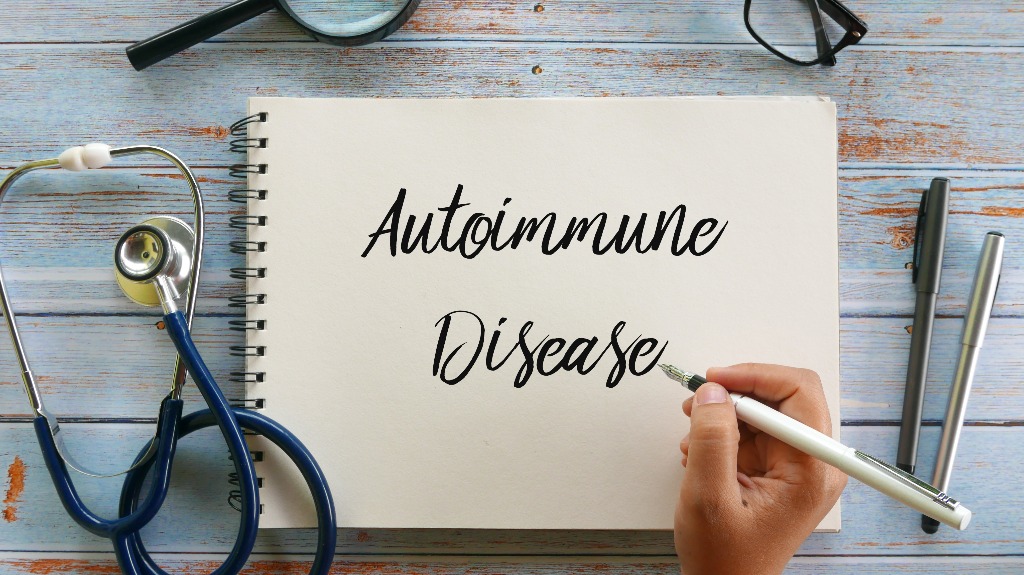 Autoimmune
Disease